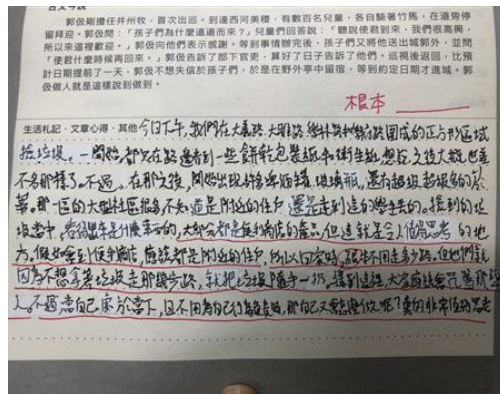 郭伋剛擔任并州牧,首次出巡,到達西河美稷,有數百名兒童,各自騎著竹馬,在道旁停
留拜迎。郭伋問:「孩子們為什麼遠道而來?」兒童們回答說:「聽說使君到來,我們很高興,
所以來這裡歡迎。」郭伋向他們表示感謝。等到事情辦完後,孩子們又將他送出城郭外,並問
「使君什麼時候再回來。」郭伋告訴了部下官吏,算好了日子告訴了他們。巡視後返回,比預
計日期提前了一天,郭伋不想失信於孩子們,於是在野外亭中留宿,等到約定日期才進城。郭
伋做人就是這樣說到做到。
根本
生活札記·文章心得·其他 今日下午,我們在大義路、大雅路
撿垃圾。一開始,都只在路邊看到一些餅乾包裝紙和衛生紙,想在之後大概也差
不多那樣了。不過,在那之後,開始出現許多啤酒罐、玻璃瓶,還有越撿越多的菸
蒂。那一區的大型社區很多,不知道是附近的住戶還是走到這的學生丟的。撿到的垃
圾當中,看得出來是什麼東西的,大部分都是便利商店的產品,但這就是令人值得思考的地
方。假如會到便利商店,應該都是附近的住戶,所以回家時,
因為不想拿著垃圾走那幾步路,就把垃圾隨手一扔。撿到這種,大家應該會咒罵那些
人。不過當自己